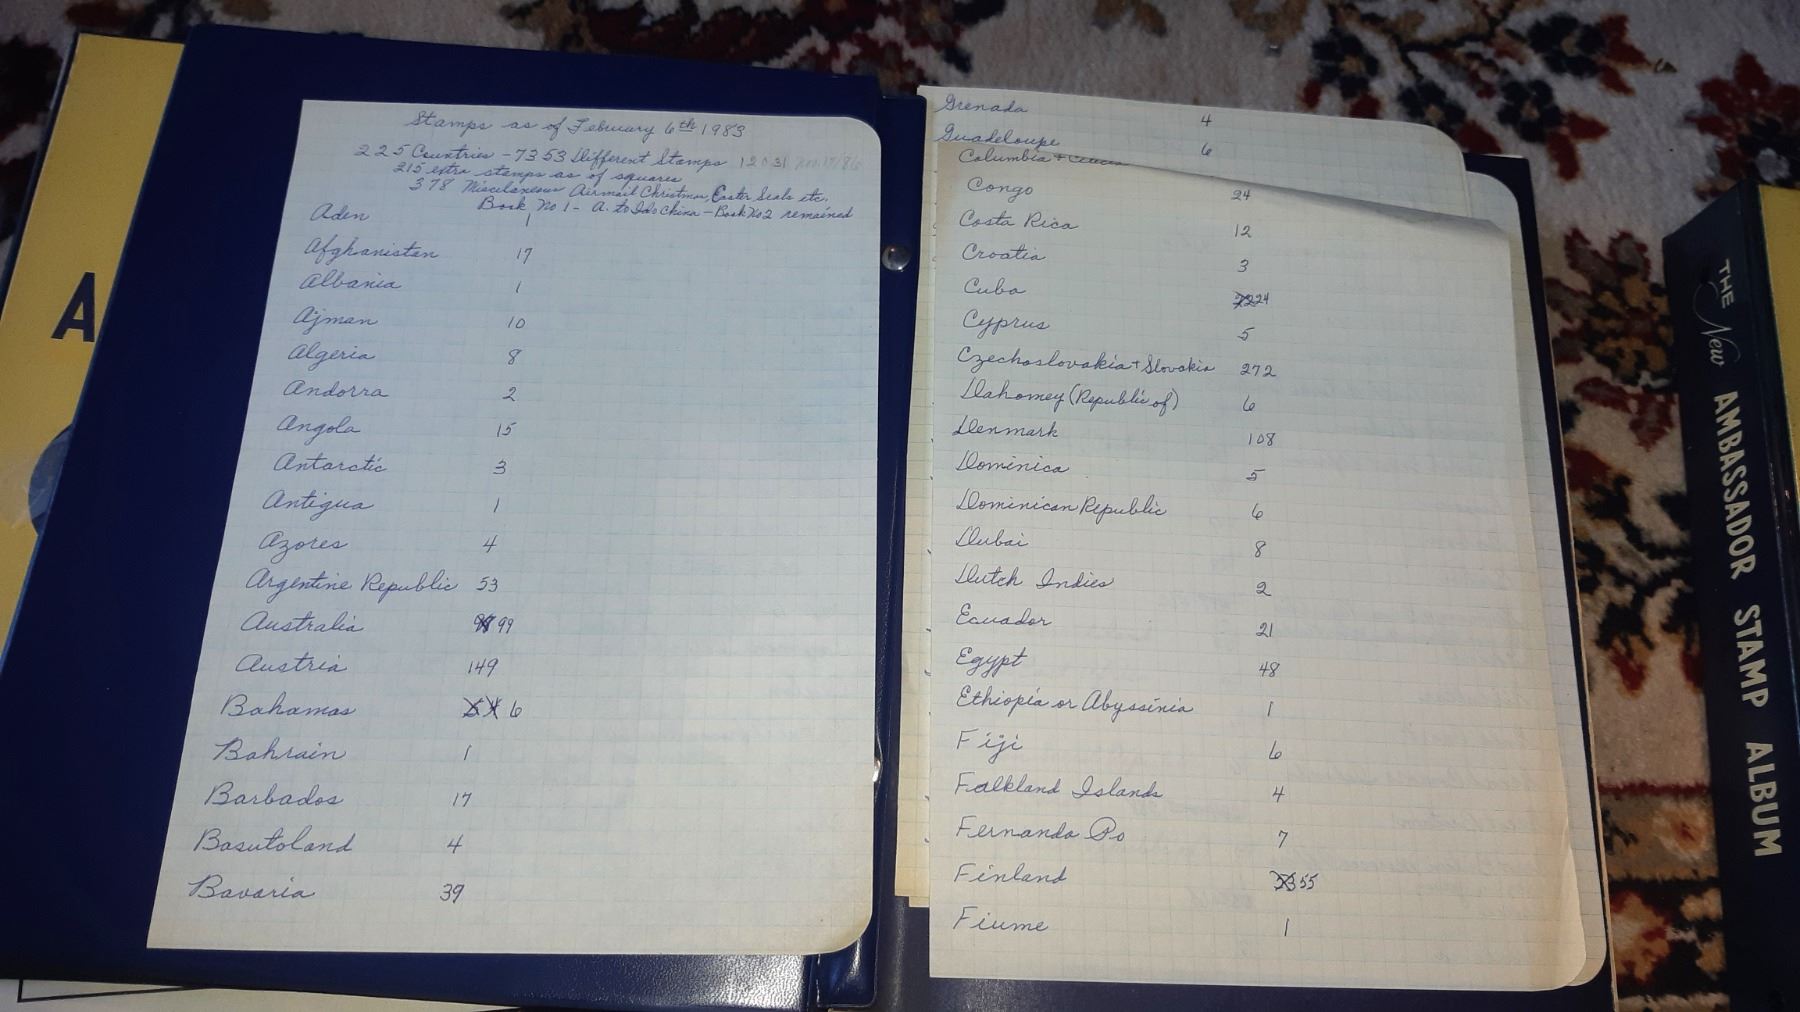 Stamps as of February 6th 1983
225 Countries - 7353 Different Stamps 12031 Nov. 17/86
215 extra stamps as of squares
378 Miscelaneous Airmail Christmas, Easter Seals etc.
Book No 1 - A. to Indo China - Book No 2 remained
Aden 1
Afghanistan 17
Albania 1
Ajman 10
Algeria 8
Andorra 2
Angola 15
Antarctic 3
Antigua 1
Azores 4
Argentine Republic 53
Australia 99
Austria 149
Bahamas 6
Bahrain 1
Barbados 17
Basutoland 4
Bavaria 39
Grenada 4
Guadeloupe 6
Columbia +
Congo 24
Costa Rica 12
Croatia 3
Cuba 224
Cyprus 5
Czechoslovakia + Slovakia 272
Dahomey (Republic of) 6
Denmark 108
Dominica 5
Dominican Republic 6
Dubai 8
Dutch Indies 2
Ecuador 21
Egypt 48
Ethiopia or Abyssinia 1
Fiji 6
Falkland Islands 4
Fernando Po 7
Finland 55
Fiume 1
A
THE New AMBASSADOR STAMP ALBUM